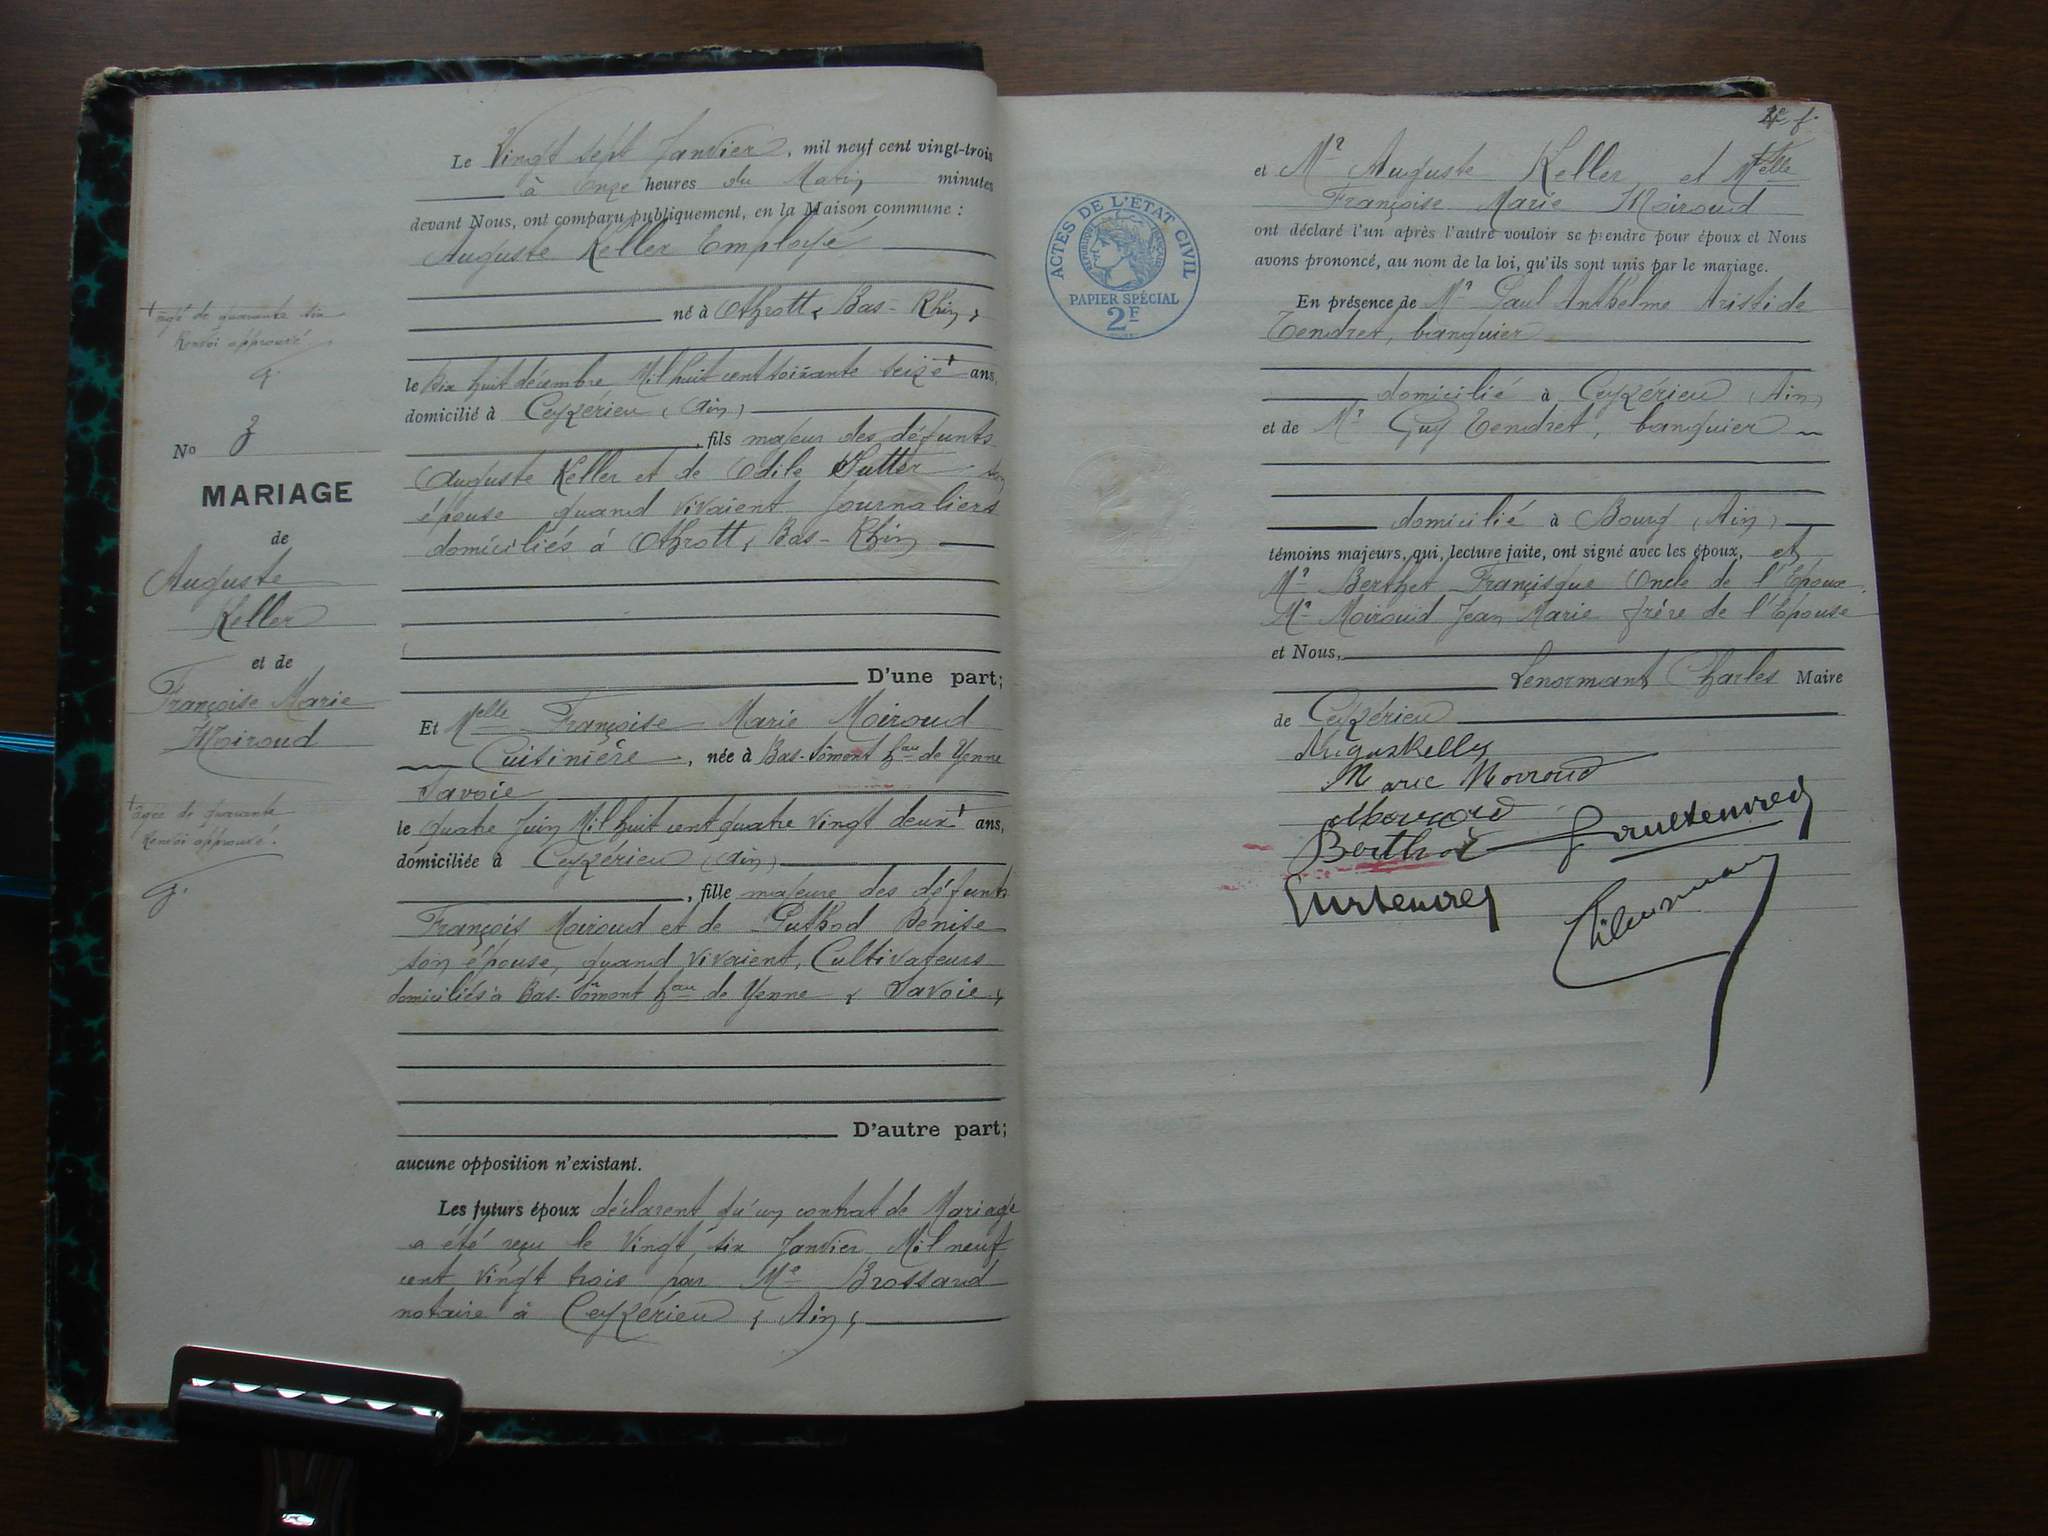 Le Vingt sept Janvier, mil neuf cent vingt-trois
à Onze heures du Matin minutes
devant Nous, ont comparu publiquement, en la Maison commune :
Auguste Keller Employé
né à Othrott, Bas-Rhin,
le Dix huit décembre Mil huit cent soixante seize + ans,
domicilié à Ceyzérieu (Ain)
, fils majeur des défunts
Auguste Keller et de Odile Sutter son
épouse quand vivaient journaliers
domiciliés à Othrott, Bas-Rhin
D'une part;
Et Melle Françoise Marie Moiroud
Cuisinière, née à Bas-Sômont hau de Yenne
Savoie
le quatre Juin Mil huit cent quatre vingt deux + ans,
domiciliée à Ceyzérieu (Ain)
, fille majeure des défunts
François Moiroud et de Puthod Denise
son épouse, quand vivaient, Cultivateurs
domiciliés à Bas-Sômont hau de Yenne (Savoie)
D'autre part;
aucune opposition n'existant.
Les futurs époux déclarent qu'un contrat de Mariage
a été reçu le Vingt six Janvier Mil neuf
cent vingt trois par Me Brossaud
notaire à Ceyzérieu (Ain)
+ agé de quarante six
Renvoi approuvé.
No 3
MARIAGE
de
Auguste
Keller
et de
Françoise Marie
Moiroud
+ agée de quarante
Renvoi approuvé.
4e f.
ACTES DE L'ÉTAT CIVIL
RÉPUBLIQUE FRANÇAISE
PAPIER SPÉCIAL
2F
et Mr Auguste Keller et Melle
Françoise Marie Moiroud
ont déclaré l'un après l'autre vouloir se prendre pour époux et Nous
avons prononcé, au nom de la loi, qu'ils sont unis par le mariage.
En présence de Mr Paul Anthelme Aristide
Tendret, banquier
domicilié à Ceyzérieu (Ain)
et de Mr Guy Tendret, banquier
domicilié à Bourg (Ain)
témoins majeurs, qui, lecture faite, ont signé avec les époux, et
Mr Berthet Françisque Oncle de l'Epoux
Mr Moiroud Jean Marie frère de l'Epouse
et Nous,
Lenormant Charles Maire
de Ceyzérieu
Marie Moiroud
Moiroud
Berthet